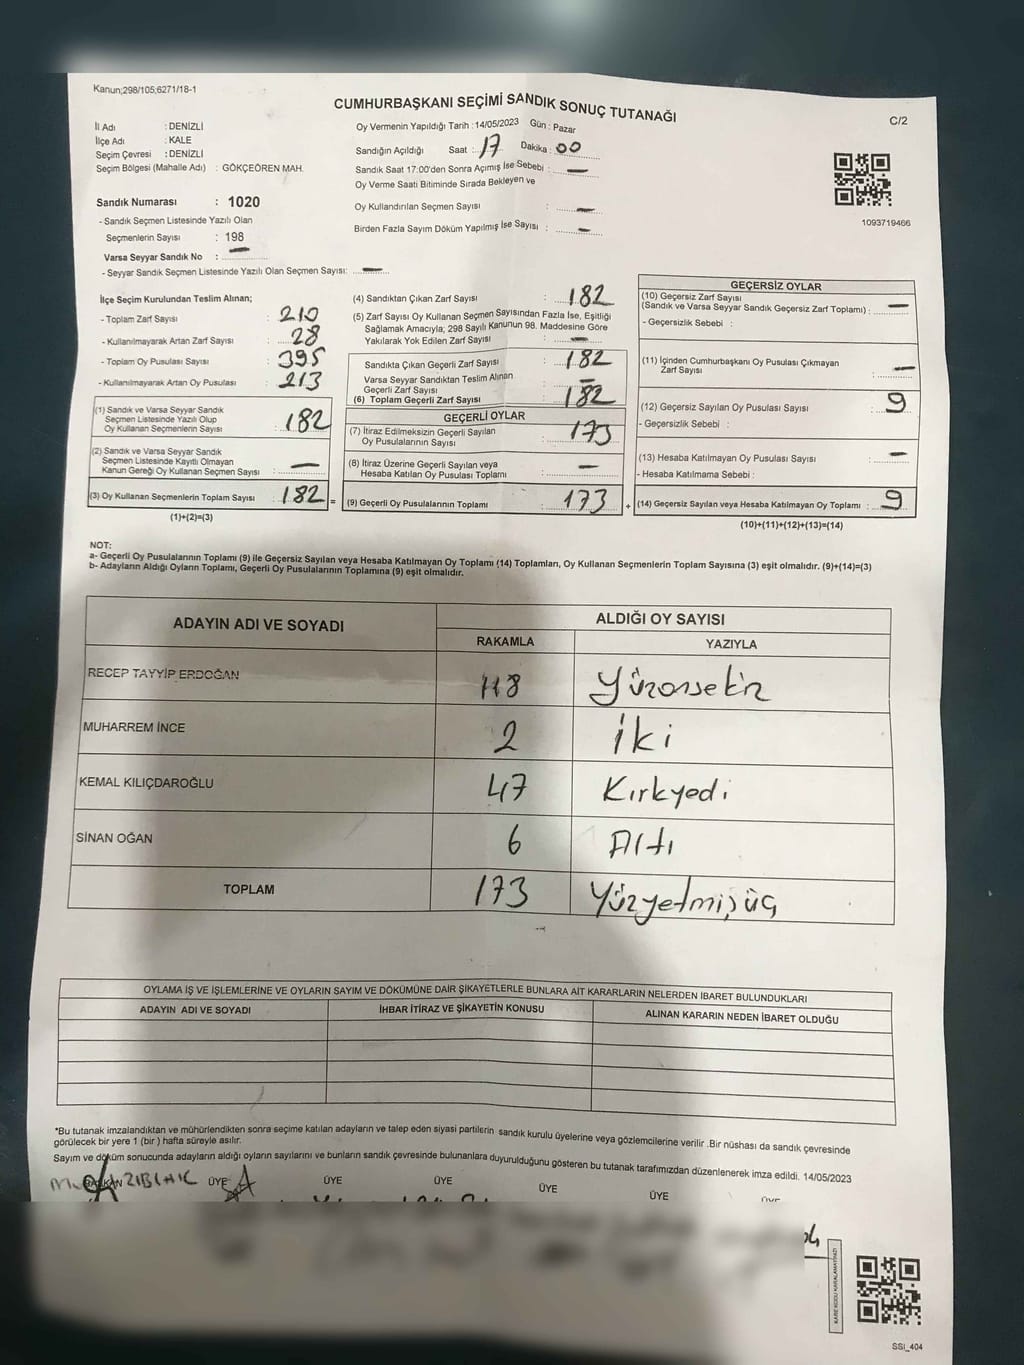 Kanun;298/105;6271/18-1
CUMHURBAŞKANI SEÇİMİ SANDIK SONUÇ TUTANAĞI
C/2
İl Adı : DENİZLİ
İlçe Adı : KALE
Seçim Çevresi : DENİZLİ
Seçim Bölgesi (Mahalle Adı) : GÖKÇEÖREN MAH.
Sandık Numarası : 1020
- Sandık Seçmen Listesinde Yazılı Olan
Seçmenlerin Sayısı : 198
Varsa Seyyar Sandık No : —
- Seyyar Sandık Seçmen Listesinde Yazılı Olan Seçmen Sayısı: —
Oy Vermenin Yapıldığı Tarih : 14/05/2023 Gün : Pazar
Sandığın Açıldığı Saat : 17 Dakika : 00
Sandık Saat 17:00'den Sonra Açımış İse Sebebi : —
Oy Verme Saati Bitiminde Sırada Bekleyen ve
Oy Kullandırılan Seçmen Sayısı : —
Birden Fazla Sayım Döküm Yapılmış İse Sayısı : —
1093719466
İlçe Seçim Kurulundan Teslim Alınan;
- Toplam Zarf Sayısı : 210
- Kullanılmayarak Artan Zarf Sayısı : 28
- Toplam Oy Pusulası Sayısı : 395
- Kullanılmayarak Artan Oy Pusulası : 213
(1) Sandık ve Varsa Seyyar Sandık
Seçmen Listesinde Yazılı Olup
Oy Kullanan Seçmenlerin Sayısı : 182
(2) Sandık ve Varsa Seyyar Sandık
Seçmen Listesinde Kayıtlı Olmayan
Kanun Gereği Oy Kullanan Seçmen Sayısı : —
(3) Oy Kullanan Seçmenlerin Toplam Sayısı : 182 =
(1)+(2)=(3)
(4) Sandıktan Çıkan Zarf Sayısı : 182
(5) Zarf Sayısı Oy Kullanan Seçmen Sayısından Fazla İse, Eşitliği
Sağlamak Amacıyla; 298 Sayılı Kanunun 98. Maddesine Göre
Yakılarak Yok Edilen Zarf Sayısı : —
Sandıkta Çıkan Geçerli Zarf Sayısı : 182
Varsa Seyyar Sandıktan Teslim Alınan
Geçerli Zarf Sayısı : —
(6) Toplam Geçerli Zarf Sayısı : 182
GEÇERLİ OYLAR
(7) İtiraz Edilmeksizin Geçerli Sayılan
Oy Pusulalarının Sayısı : 173
(8) İtiraz Üzerine Geçerli Sayılan veya
Hesaba Katılan Oy Pusulası Toplamı : —
(9) Geçerli Oy Pusulalarının Toplamı : 173 +
GEÇERSİZ OYLAR
(10) Geçersiz Zarf Sayısı
(Sandık ve Varsa Seyyar Sandık Geçersiz Zarf Toplamı) : —
- Geçersizlik Sebebi :
(11) İçinden Cumhurbaşkanı Oy Pusulası Çıkmayan
Zarf Sayısı : —
(12) Geçersiz Sayılan Oy Pusulası Sayısı : 9
- Geçersizlik Sebebi :
(13) Hesaba Katılmayan Oy Pusulası Sayısı : —
- Hesaba Katılmama Sebebi :
(14) Geçersiz Sayılan veya Hesaba Katılmayan Oy Toplamı : 9
(10)+(11)+(12)+(13)=(14)
NOT:
a- Geçerli Oy Pusulalarının Toplamı (9) ile Geçersiz Sayılan veya Hesaba Katılmayan Oy Toplamı (14) Toplamları, Oy Kullanan Seçmenlerin Toplam Sayısına (3) eşit olmalıdır. (9)+(14)=(3)
b- Adayların Aldığı Oyların Toplamı, Geçerli Oy Pusulalarının Toplamına (9) eşit olmalıdır.
ADAYIN ADI VE SOYADI ALDIĞI OY SAYISI
RAKAMLA YAZIYLA
RECEP TAYYİP ERDOĞAN 118 Yüzonsekiz
MUHARREM İNCE 2 İki
KEMAL KILIÇDAROĞLU 47 Kırkyedi
SİNAN OĞAN 6 Altı
TOPLAM 173 Yüzyetmişüç
OYLAMA İŞ VE İŞLEMLERİNE VE OYLARIN SAYIM VE DÖKÜMÜNE DAİR ŞİKAYETLERLE BUNLARA AİT KARARLARIN NELERDEN İBARET BULUNDUKLARI
ADAYIN ADI VE SOYADI İHBAR İTİRAZ VE ŞİKAYETİN KONUSU ALINAN KARARIN NEDEN İBARET OLDUĞU
*Bu tutanak imzalandıktan ve mühürlendikten sonra seçime katılan adayların ve talep eden siyasi partilerin sandık kurulu üyelerine veya gözlemcilerine verilir .Bir nüshası da sandık çevresinde
görülecek bir yere 1 (bir ) hafta süreyle asılır.
Sayım ve döküm sonucunda adayların aldığı oyların sayılarını ve bunların sandık çevresinde bulunanlara duyurulduğunu gösteren bu tutanak tarafımızdan düzenlenerek imza edildi. 14/05/2023
ÜYE ÜYE ÜYE ÜYE ÜYE
SSİ_404